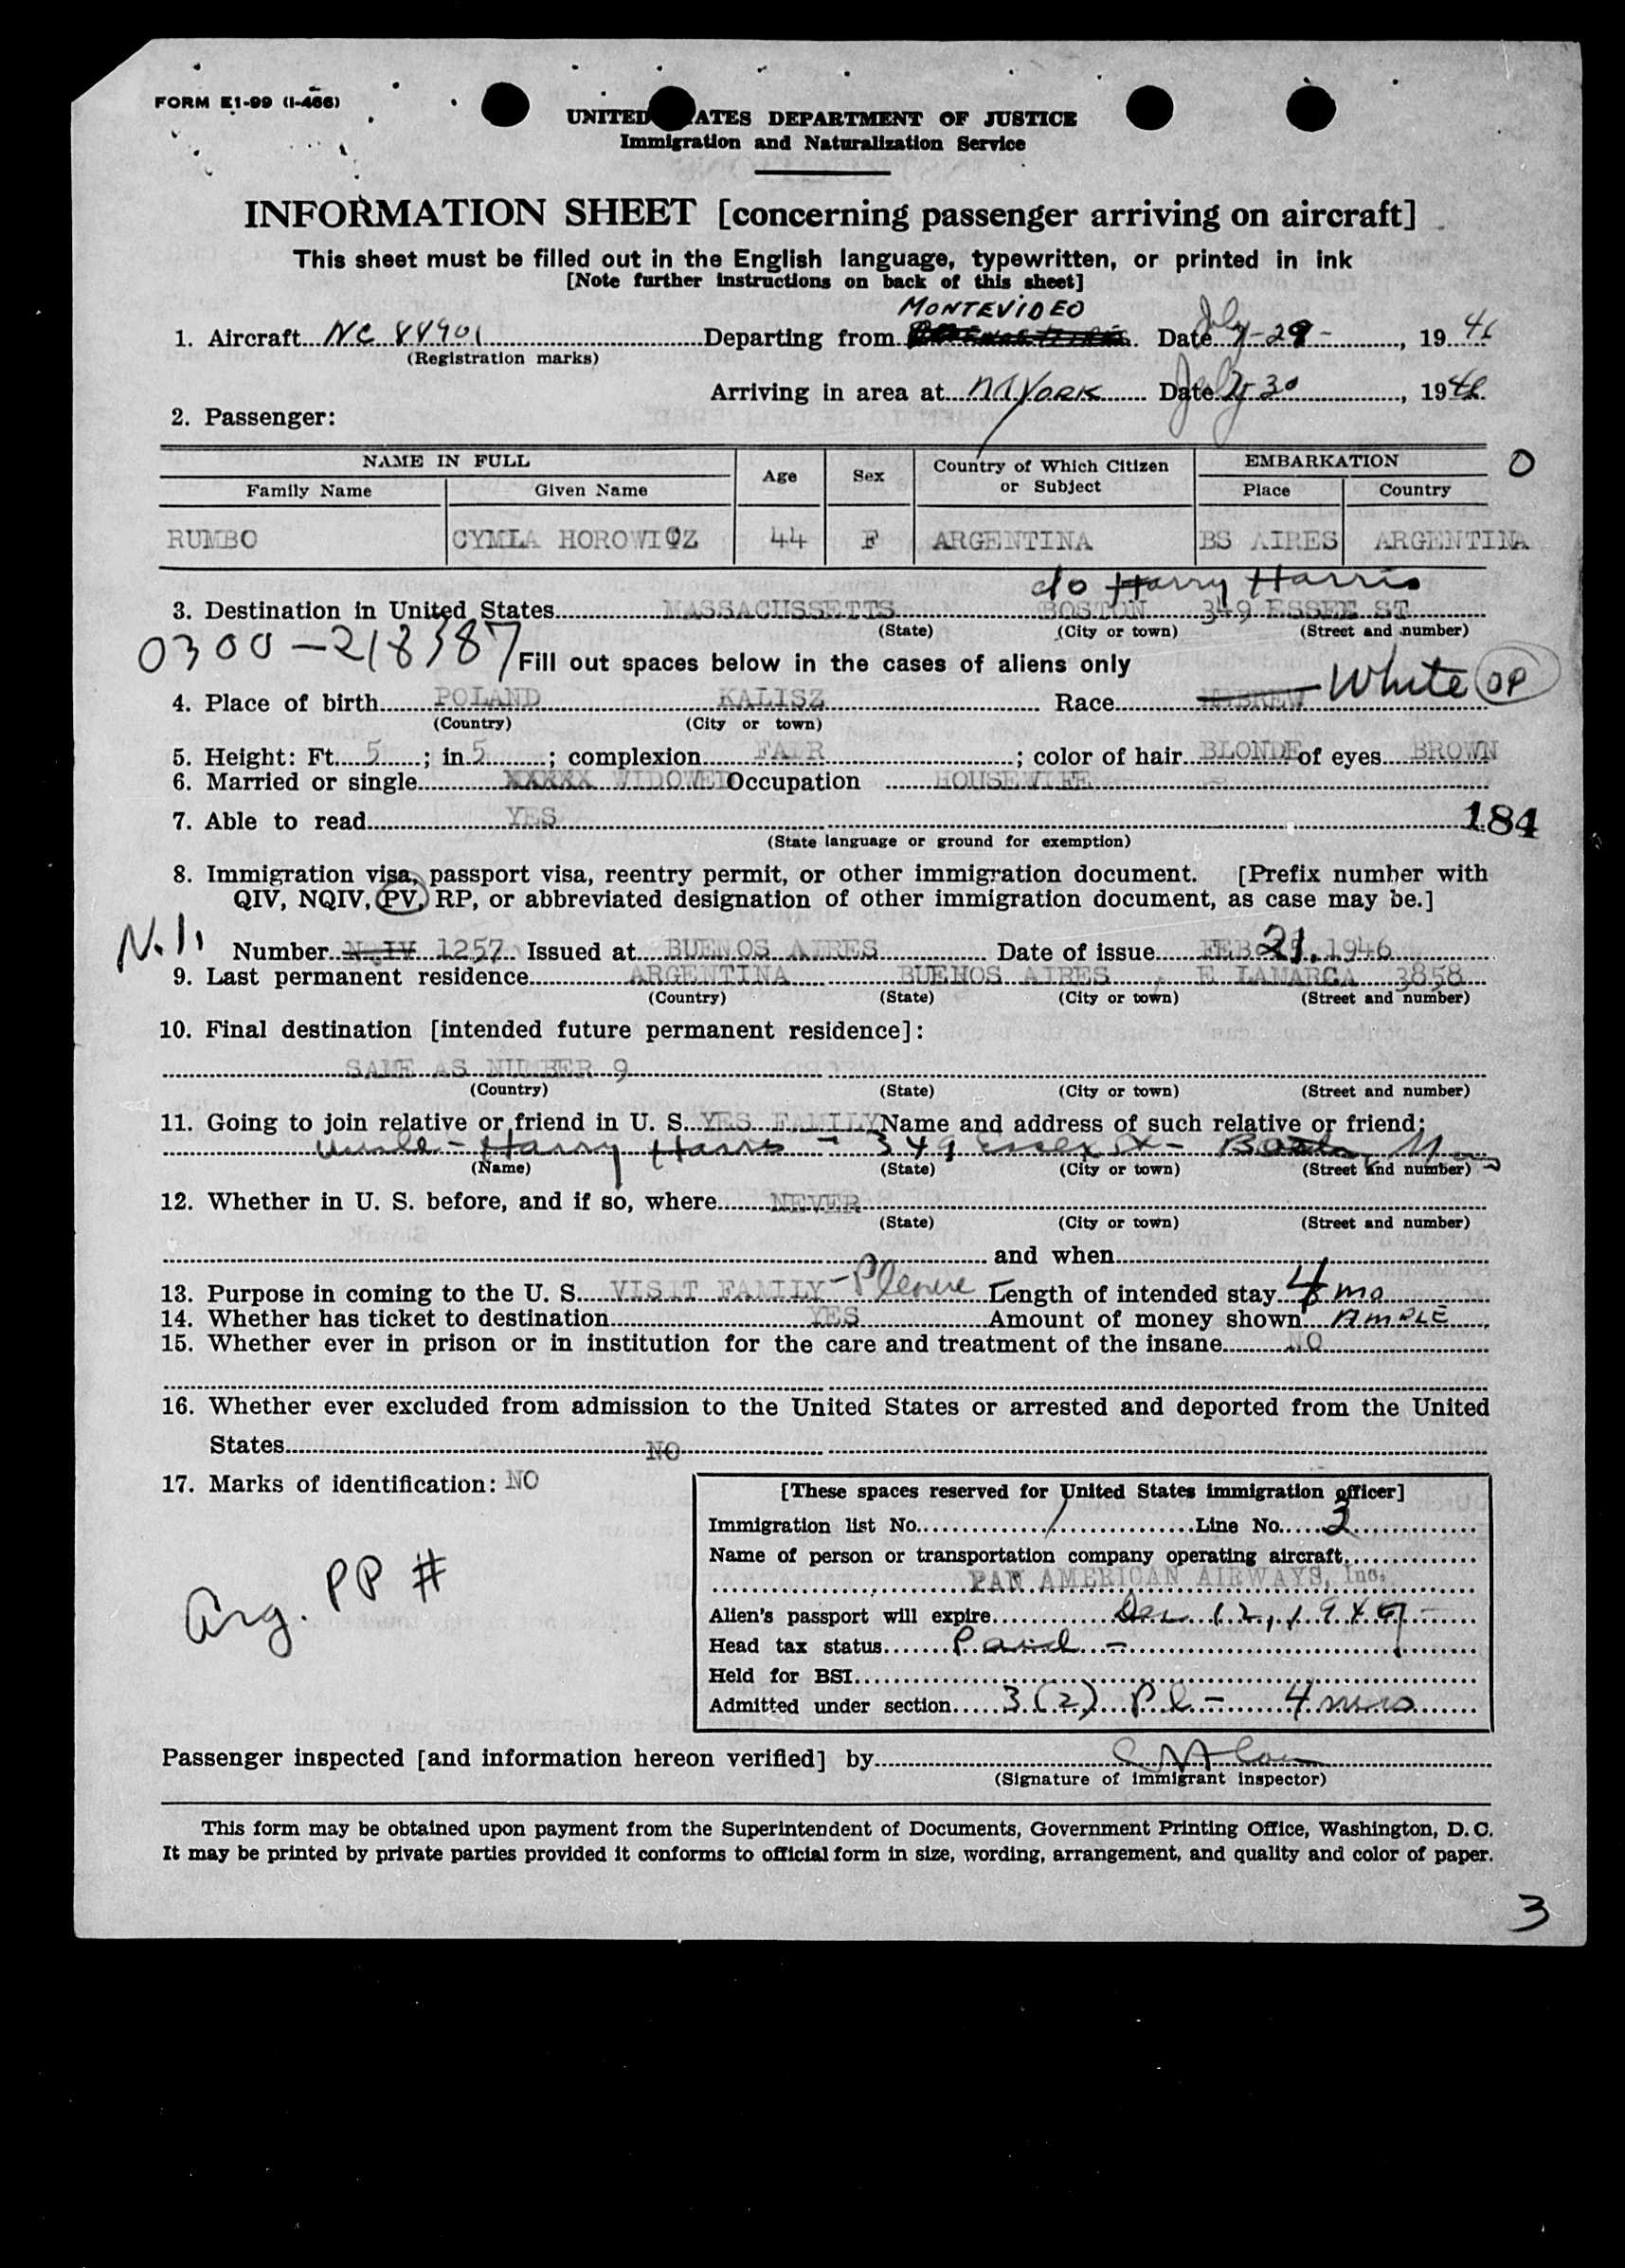 FORM E1-99 (I-466)
UNITED STATES DEPARTMENT OF JUSTICE
Immigration and Naturalization Service
INFORMATION SHEET [concerning passenger arriving on aircraft]
This sheet must be filled out in the English language, typewritten, or printed in ink
[Note further instructions on back of this sheet]
MONTEVIDEO
1. Aircraft NC 88901 Departing from Date July 29 - , 1946
(Registration marks)
Arriving in area at N.York Date July 30, 1946
2. Passenger:
NAME IN FULL Age Sex Country of Which Citizen or Subject EMBARKATION O
Family Name Given Name Place Country
RUMBO CYMLA HOROWICZ 44 F ARGENTINA BS AIRES ARGENTINA
c/o Harry Harris
3. Destination in United States MASSACHSSETTS BOSTON 349 ESSEX ST
(State) (City or town) (Street and number)
0300-218387
Fill out spaces below in the cases of aliens only
4. Place of birth POLAND KALISZ Race HEBREW White OP
(Country) (City or town)
5. Height: Ft. 5 ; in. 5 ; complexion FAIR ; color of hair BLONDE of eyes BROWN
6. Married or single XXXXX WIDOWED Occupation HOUSEWIFE
7. Able to read YES 184
(State language or ground for exemption)
8. Immigration visa, passport visa, reentry permit, or other immigration document. [Prefix number with
QIV, NQIV, PV, RP, or abbreviated designation of other immigration document, as case may be.]
Number 1257 Issued at BUENOS AIRES Date of issue FEB 21, 1946
9. Last permanent residence ARGENTINA BUENOS AIRES , E LAMARCA 3858
(Country) (State) (City or town) (Street and number)
10. Final destination [intended future permanent residence]:
SAME AS NUMBER 9
(Country) (State) (City or town) (Street and number)
11. Going to join relative or friend in U. S. YES FAMILY Name and address of such relative or friend:
Uncle - Harry Harris - 349 Essex St - Boston, Mass
(Name) (State) (City or town) (Street and number)
12. Whether in U. S. before, and if so, where NEVER
(State) (City or town) (Street and number)
and when
13. Purpose in coming to the U. S. VISIT FAMILY - Pleasure Length of intended stay 4 mo
14. Whether has ticket to destination YES Amount of money shown AMPLE
15. Whether ever in prison or in institution for the care and treatment of the insane NO
16. Whether ever excluded from admission to the United States or arrested and deported from the United
States NO
17. Marks of identification: NO
[These spaces reserved for United States immigration officer]
Immigration list No. 1 Line No. 3
Name of person or transportation company operating aircraft
PAN AMERICAN AIRWAYS, Inc.
Arg. PP #
Alien's passport will expire Dec 12, 1947 -
Head tax status Paid -
Held for BSI
Admitted under section 3(2) Pl - 4 mos
Passenger inspected [and information hereon verified] by
(Signature of immigrant inspector)
This form may be obtained upon payment from the Superintendent of Documents, Government Printing Office, Washington, D. C.
It may be printed by private parties provided it conforms to official form in size, wording, arrangement, and quality and color of paper.
3